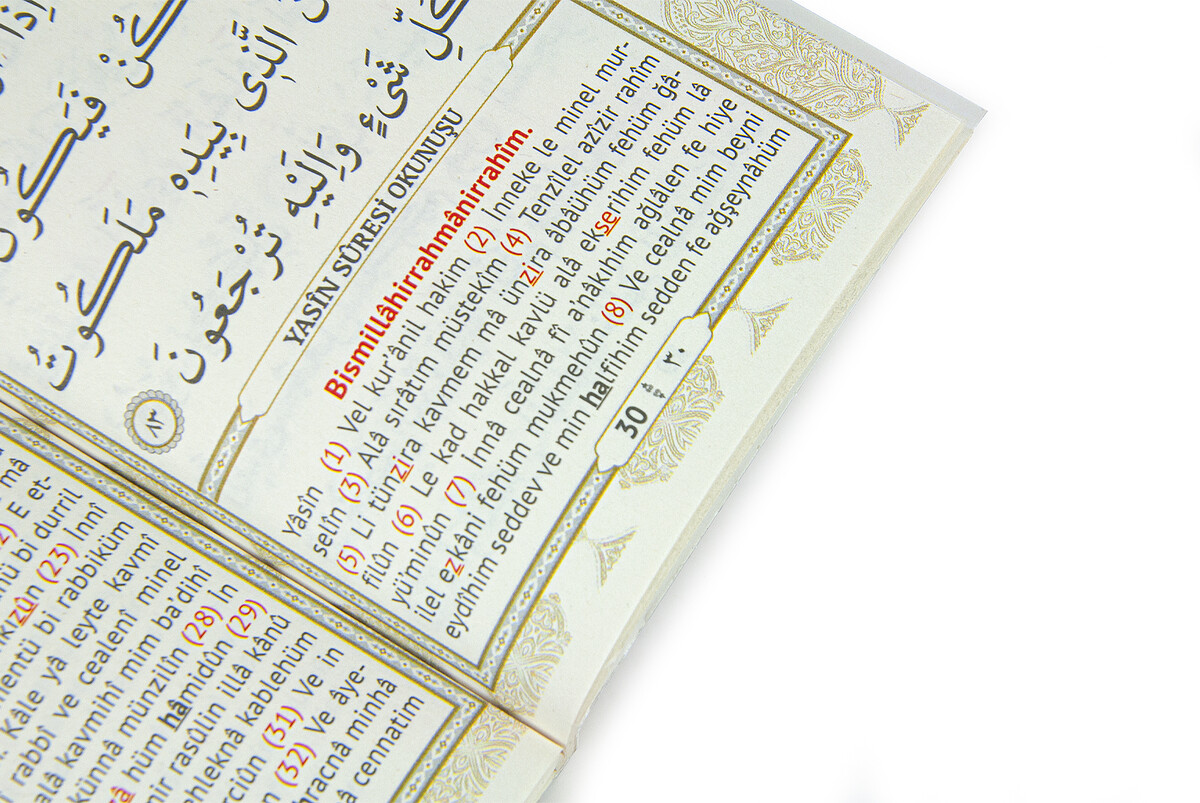 كُنْ فَيَكُونُ
الَّذِى بِيَدِهِ مَلَكُوتُ
كُلِّ شَىْءٍ وَاِلَيْهِ تُرْجَعُونَ
٨٣
YASÎN SÛRESİ OKUNUŞU
Bismillâhirrahmânirrahîm.
Yâsîn (1) Vel kur'ânil hakîm (2) İnneke le minel mur-
selîn (3) Alâ sırâtım müstekîm (4) Tenzîlel azîzir rahîm
(5) Li tünzira kavmem mâ ünzira âbâühüm fehüm ğâ-
filûn (6) Le kad hakkal kavlü alâ ekserihim fehüm lâ
yü'minûn (7) İnnâ cealnâ fî a'nâkıhim ağlâlen fe hiye
ilel ezkâni fehüm mukmehûn (8) Ve cealnâ mim beyni
eydîhim seddev ve min halfihim sedden fe ağşeynâhüm
30 ٣٠
E mâ
et-
bi durril
(23) İnnî
bi rabbiküm
Kâle yâ leyte kavmî
rabbî ve cealenî minel
alâ kavmihî mim ba'dihî
künnâ münzilîn (28) İn
hüm hâmidûn (29)
mir rasûlin illâ kânû
ehleknâ kablehüm
(31) Ve in
(32) Ve âye-
minhâ
cennatim